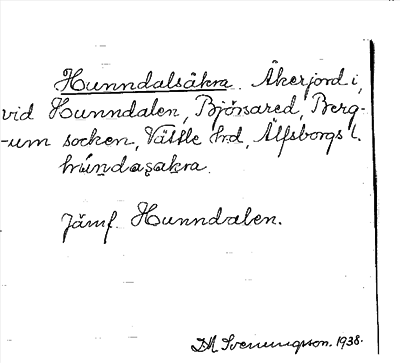 Hunndalsåkra. Åkerjord i,
vid Hunndalen, Björsared, Berg-
-um socken, Vättle hrd, Älfsborgs l.
húndaṣakra.
Jämf. Hunndalen.
D.A. Svenungsson. 1938.